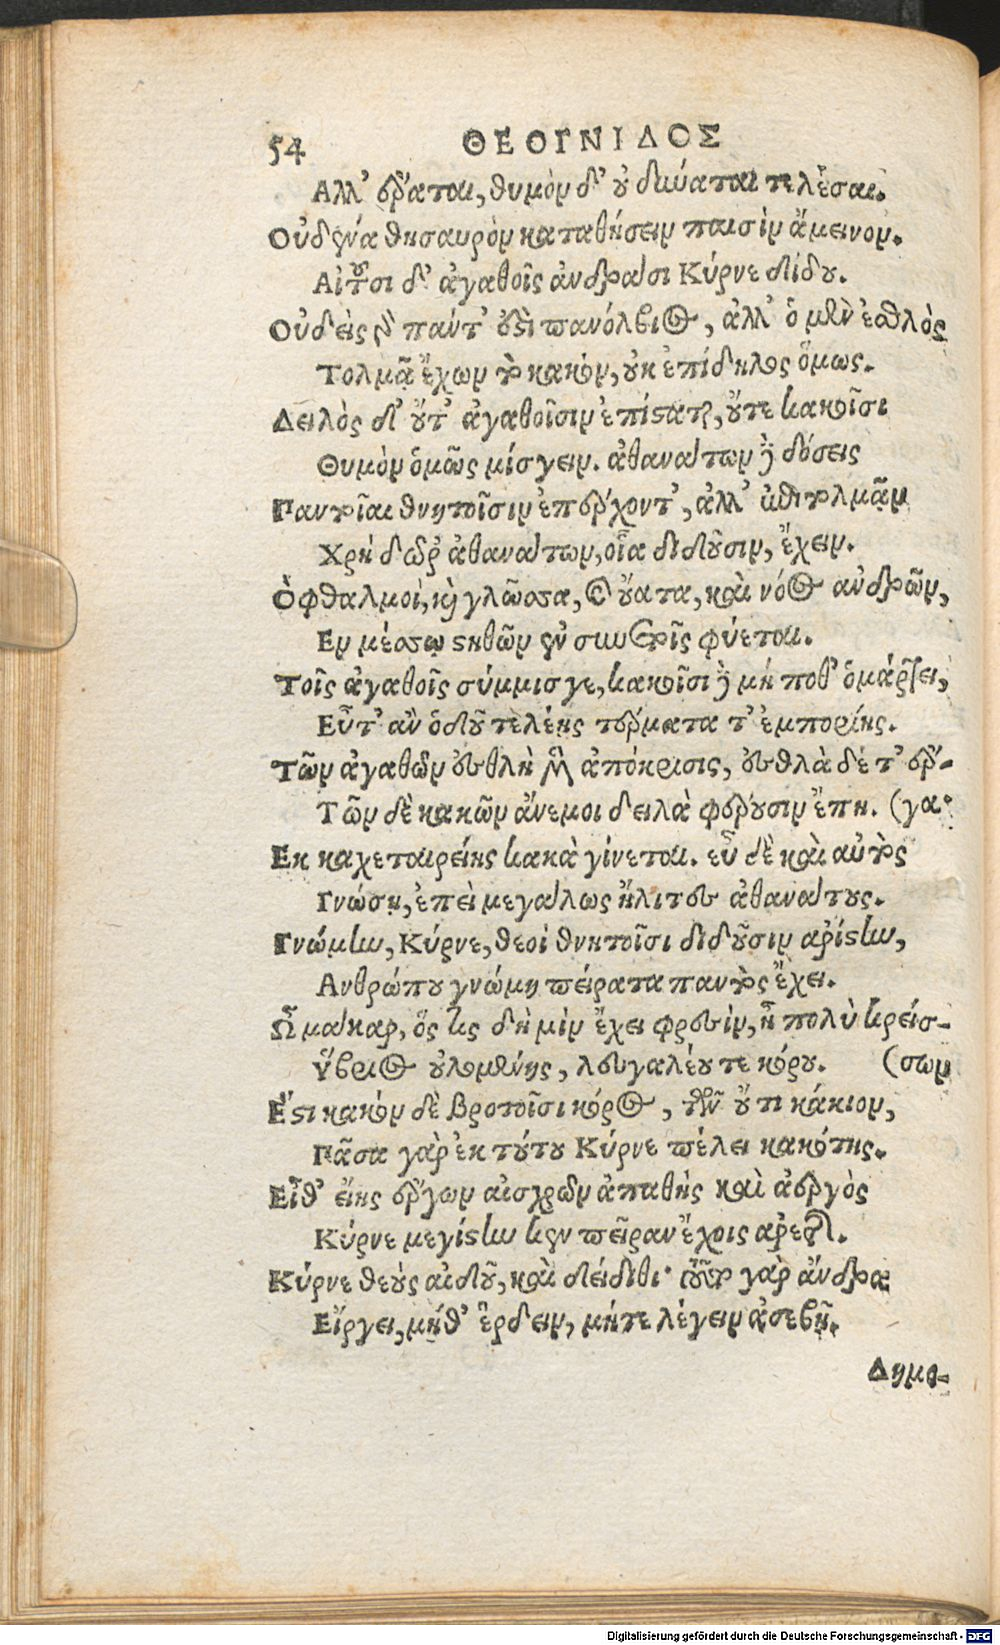 54 ΘΕΟΓΝΙΔΟΣ
Αλλ' ἔραται, θυμὸν δ' οὐ δύναται τελέσαι.
Οὐδένα θησαυρὸν καταθήσειν παισὶν ἄμεινον.
Αἰτοῦσι δ' ἀγαθοῖς ἀνδράσι Κύρνε δίδου.
Οὐδεὶς γὸ πάντ' ἐστὶ πανόλβιος, ἀλλ' ὁ μὲν ἐσθλὸς
Τολμᾷ ἔχων τὸ κακὸν, οὐκ ἐπίδηλος ὅμως.
Δειλὸς δ' οὔτ' ἀγαθοῖσιν ἐπίσταται, οὔτε κακοῖσι
Θυμὸν ὁμῶς μίσγειν. ἀθανάτων δὲ δόσεις
Παντοῖαι θνητοῖσιν ἐπέρχοντ', ἀλλ' ἐπιτολμᾷν
Χρὴ δῶρ' ἀθανάτων, οἷα διδοῦσιν, ἔχειν.
Ὀφθαλμοὶ, καὶ γλῶσσα, καὶ οὔατα, καὶ νόος ἀνδρῶν,
Εν μέσσῳ στηθῶν ἐν συνετοῖς φύεται.
Τοῖς ἀγαθοῖς σύμμισγε, κακοῖσι δὲ μή ποθ' ὁμάρτει,
Εὖτ' ἂν ὁδοῦ τελέῃς τέρματα τ' ἐμπορίης.
Τῶν ἀγαθῶν ἐσθλὴ μὲν ἀπόκρισις, ἐσθλὰ δέ τ' ἔρ-
Τῶν δὲ κακῶν ἄνεμοι δειλὰ φέρουσιν ἔπη. (γα·
Εκ καχεταιρείης κακὰ γίνεται. εὖ δὲ καὶ αὐτὸς
Γνώσῃ, ἐπεὶ μεγάλως ἤλιτες ἀθανάτους.
Γνώμην, Κύρνε, θεοὶ θνητοῖσι διδοῦσιν ἀρίστην,
Ανθρώπου γνώμη πείρατα παντὸς ἔχει.
Ὦ μάκαρ, ὅς τις δή μιν ἔχει φρεσὶν, ἦ πολὺ κρείσ-
Ὕβριος οὐλομένης, λευγαλέου τε κόρου. (σων
Ἔστι κακὸν δὲ βροτοῖσι κόρος, τῶν οὔτι κάκιον,
Πᾶσα γὰρ ἐκ τούτου Κύρνε πέλει κακότης.
Εἴθ' εἴης ἔργων αἰσχρῶν ἀπαθὴς καὶ ἀεργὸς
Κύρνε μεγίστην κεν πεῖραν ἔχοις ἀρετῆς.
Κύρνε θεοὺς αἰδοῦ, καὶ δείδιθι· τοῦτο γὰρ ἄνδρα
Εἴργει, μήθ' ἕρδειν, μήτε λέγειν ἀσεβῆ.
Δημο-
Digitalisierung gefördert durch die Deutsche Forschungsgemeinschaft - DFG